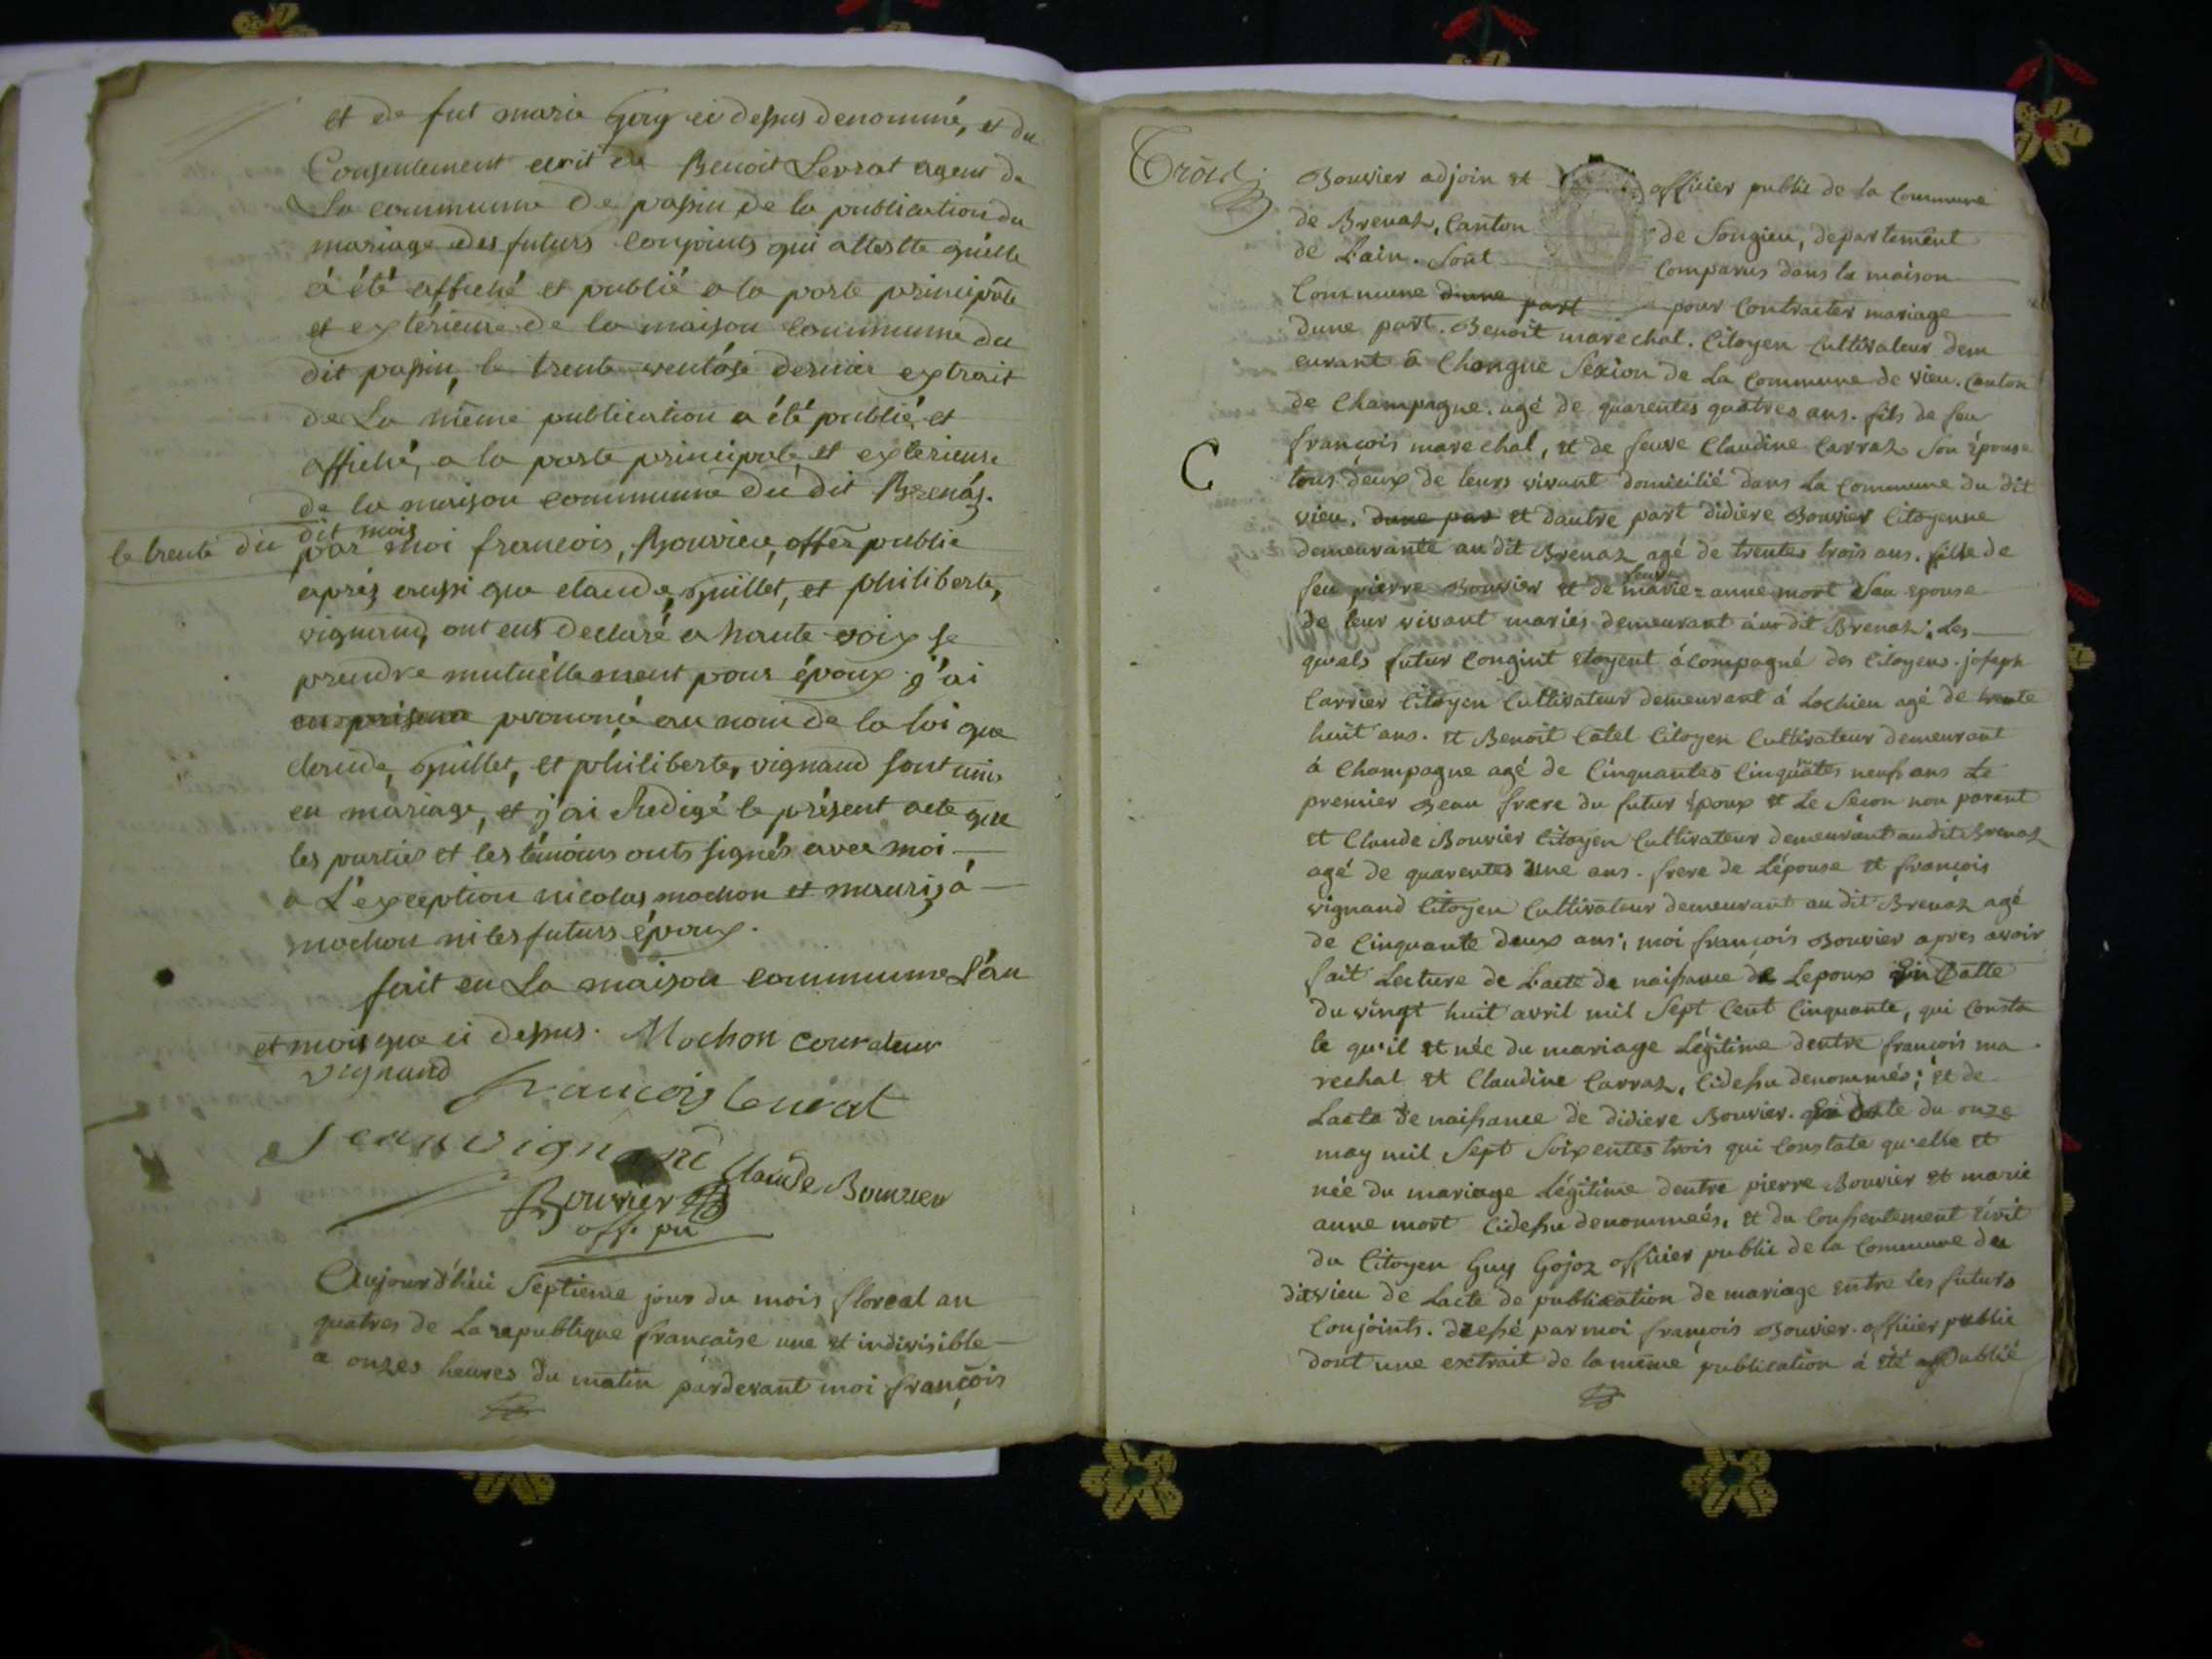 et de fut marie Goy ci dessus denommé, et du
Consentement ecrit de Benoit Levrat agent de
La commune De passin de la publication du
mariage des futurs conjoints qui attestte quelle
à été affiché et publié a la porte principale
et extérieure de la maison commune du
dit passin, le trente ventôse dernier extrait
de La même publication a été publié, et
affiché, a la porte principale et extérieure
de la maison commune du dit Brenáz.
le trente du dit mois
par moi francois, Bouvier, offer public
aprés aussi que claude, Guillet, et philiberte,
vignand, ont eut Declaré a haute voix se
prendre mutuéllement pour époux j'ai
prononcé au nom de la loi que
claude, Guillet, et philiberte, vignand sont unis
en mariage, et j'ai Redigé le présent acte que
les parties et les témoins onts signés avec moi
a L'exception nicolas mochon et
mochon ni les futurs époux.
fait en La maison commune L'an
et mois que ci dessus. Mochon courateur
vignand
francois levrat
Jean vignand Claude Bouvier
Bouvier
off. pu
Aujourd'hui Septieme jour du mois floreal an
quatres de La republique francaise une et indivisible
a onzes heures du matin pardevant moi françois
Troid
Bouvier adjoin et officier public de la Commune
de Brenaz, Canton de Songieu, departement
de L'ain. Sont Comparus dans la maison
Commune dune part pour Contracter mariage
dune part. Benoit marechal. Citoyen Cultivateur dem
eurant à Chongne Sexion de La Commune de vieu. Canton
de Champagne. agé de quarentes quatres ans. fils de feu
françois marechal, et de feuve Claudine Carraz Son Épouse
C
tous deux de leurs vivant domicilié dans La Commune du dit
vieu. dune par et dautre part didiere Bouvier Citoyenne
demeurante au dit Brenaz agé de trentes trois ans. fille de
feu pierre Bouvier et de feuve marie=anne mort Sau epouse
de leur vivant mariés demeurant au dit Brenaz; Les
quels futur Congint etoyent ácompagné des Citoyens. joseph
Carrier Citoyen Cultivateur demeurant á Lochieu agé de trente
huit ans. et Benoit Catel Citoyen Cultivateur demeurant
à Champagne agé de Cinquantes neufs ans Le
premier Beau frere du futur Époux et Le Secon non parent
et Claude Bouvier Citoyen Cultivateur demeurant audit Brenaz
agé de quarentes une ans. frere de Lépouse et françois
vignand Citoyen Cultivateur demeurant au dit Brenaz agé
de Cinquante deux ans; moi françois Bouvier apres avoir
fait Lecture de L'acte de naissance de Lepoux En Datte
du vingt huit avril mil Sept Cent Cinquante, qui Consta
te qu'il et née du mariage Légitime dentre françois ma
rechal et Claudine Carraz, Cidessu denommés; et de
Lacte de naissance de didiere Bouvier. En date du onze
may mil Sept Soixentes trois qui Constate qu'elle et
née du mariage Légitime dentre pierre Bouvier et marie
anne mort Cidessu denommeés, et du Consentement Écrit
du Citoyen Guy Gojoz officier public de la Commune du
dit vieu de Lacte de publication de mariage Entre les futurs
Conjoints. dressé par moi françois Bouvier. officier public
dont une extrait de la même publication à Été